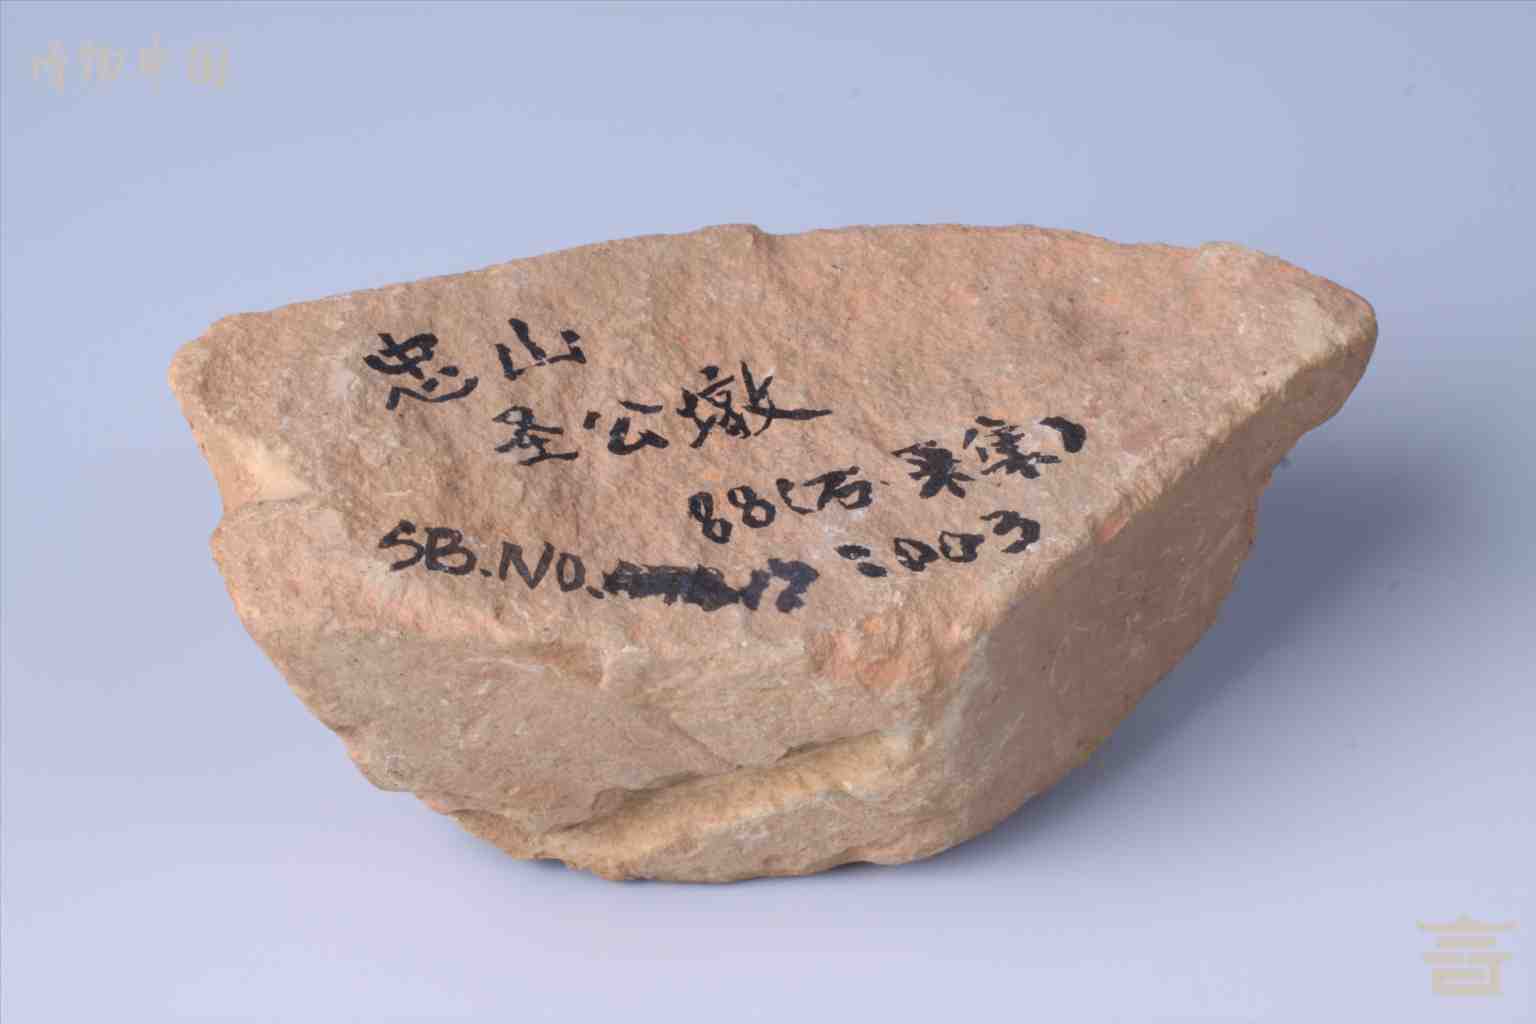 博物中国
忠山
圣公墩
88(石.采集)
SB.NO. 17:003